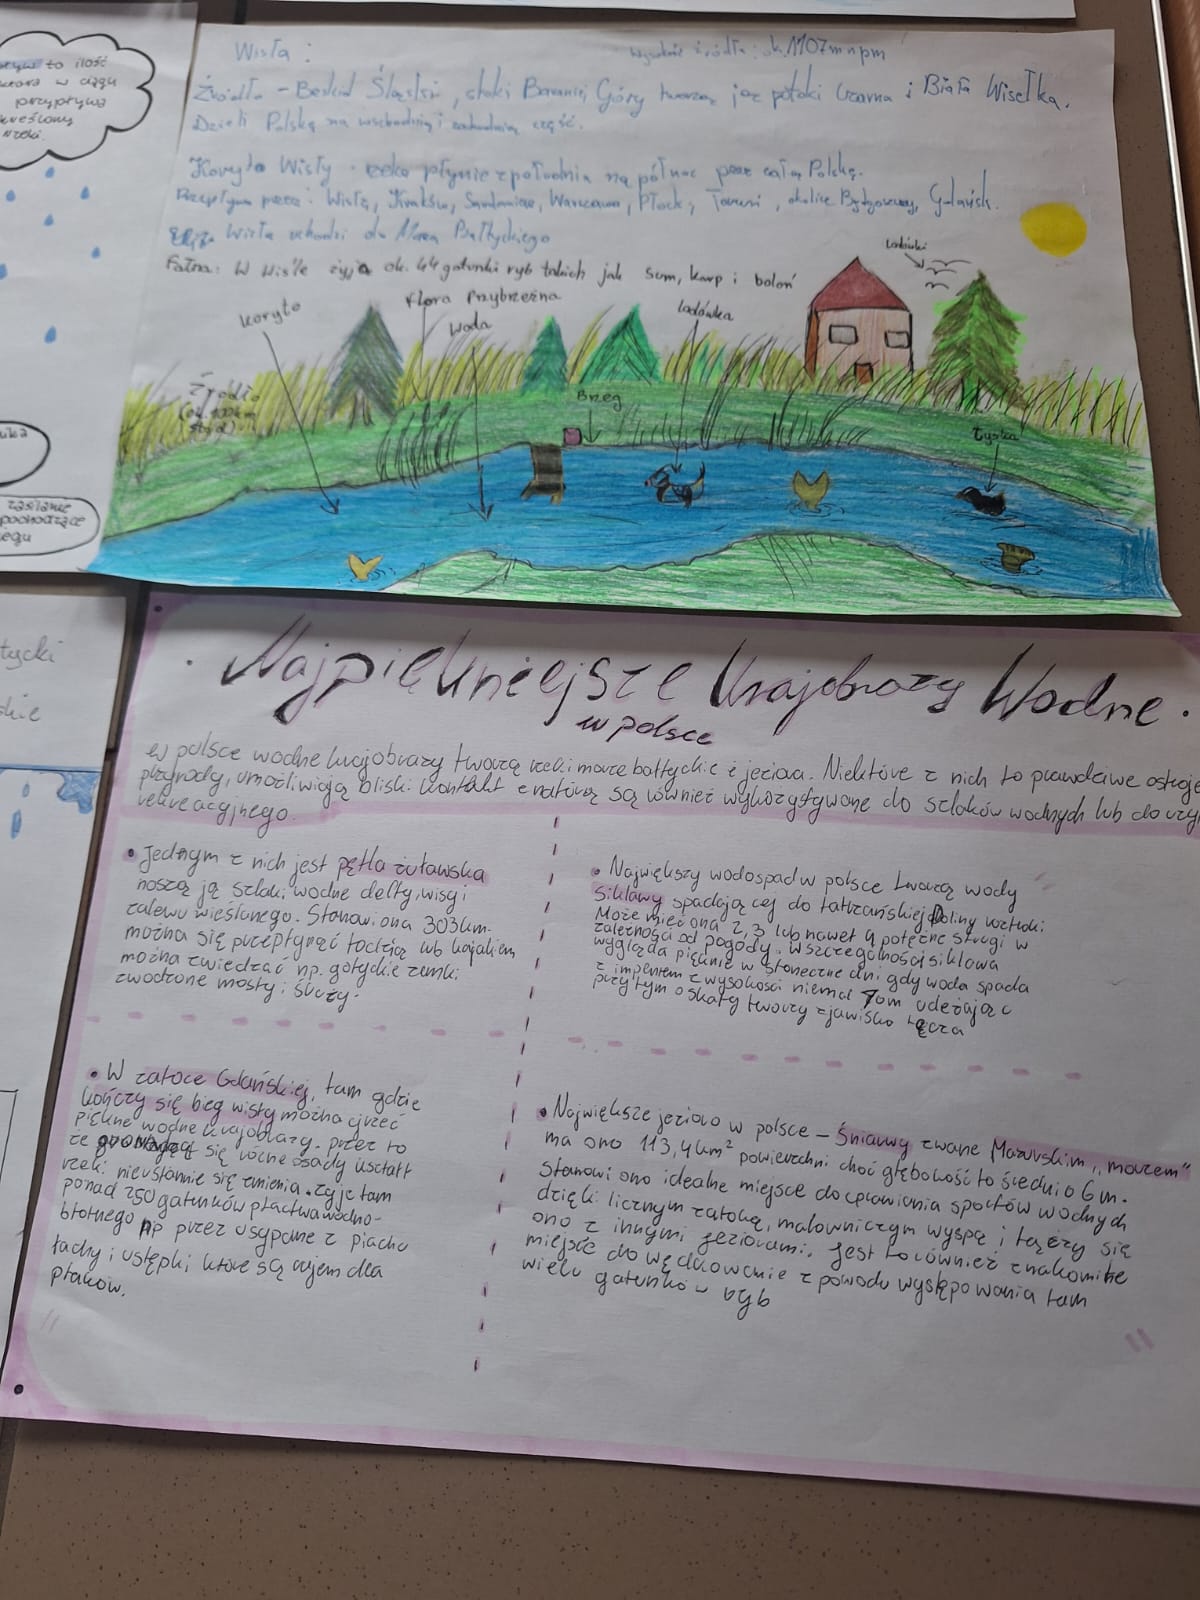 to ilość
w ciągu
przypływa
określony
rzeki.
zasilanie
pochodzące
Wisła :
Wysokość źródła: ok. 1107 m n pm
Źródła - Beskid Śląski, stoki Baraniej Góry tworzą jąz potoki Czarna i Biała Wisełka.
Dzieli Polskę na wschodnią i zachodnią część.
Koryto Wisły - rzeka płynie z południa na północ przez całą Polskę.
Przepływa przez: Wisłę, Kraków, Sandomierz, Warszawa, Płock, Toruń, okolice Bydgoszczy, Gdańsk.
Wisła uchodzi do Morza Bałtyckiego
Fałna: W Wiśle żyją ok. 44 gatunki ryb takich jak sum, karp i boleń
koryto
Flora Przybrzeżna
Woda
Lodówka
Źródło
Brzeg
Łyska
tycki
skie
• Najpiękniejsze Krajobrazy Wodne •
w polsce
W polsce wodne krajobrazy tworzą rzeki morze bałtyckie i jeziora. Niektóre z nich to prawdziwe ostoje
przyrody, umożliwiają bliski kontakt z naturą są również wykorzystywane do szlaków wodnych lub do
rekreacyjnego.
• Jednym z nich jest pętla żuławska
noszą ją szlaki wodne delty, wisły i
zalewu wieślanego. Stanowi ona 303 km.
można się przepłynąć łodzią lub kajakiem
można zwiedzać np. gotyckie zamki
zwodzone mosty i śluzy.
• Największy wodospad w polsce tworzą wody
siklawy spadającej do tatrzańskiej Doliny roztoki
Może mieć ona 2, 3 lub nawet 4 potężne strugi w
zależności od pogody. W szczególności siklawa
wygląda pięknie w słoneczne dni, gdy woda spada
z impentem z wysokości niemal 70m uderzając
przy tym o skały tworzy zjawisko tęcza
• W zatoce Gdańskiej, tam gdzie
kończy się bieg wisły można ujrzeć
piękne wodne krajobrazy. przez to
że gromadzą się różne osady kształt
rzeki nieustannie się zmienia. żyje tam
ponad 250 gatunków ptactwa wodno-
błotnego np przez usypane z piachu
łachy i ustępki które są rajem dla
ptaków.
• Największe jezioro w polsce - Śniarwy zwane Mazurskim "morzem"
ma ono 113,4 km² powierzchni choć głębokość to średnio 6 m.
Stanowi ono idealne miejsce do uprawiania sportów wodnych
dzięki licznym zatokom, malowniczym wyspą i łączy się
ono z innymi jeziorami. Jest to również znakomite
miejsce do wędkowanie z powodu występowania tam
wielu gatunków ryb